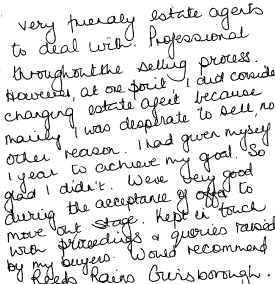 very friendly estate agents
to deal with. Professional
throughout the selling process.
However, at one point, I did conside
changing estate agent because
mainly I was desperate to sell, no
other reason. I had given myself
1 year to achieve my goal. So
glad I didn't. Were very good
during the acceptance of offer to
move out stage. Kept in touch
with proceedings & queries raised
by my buyers. Would recommend
Reeds Rains Guisborough.